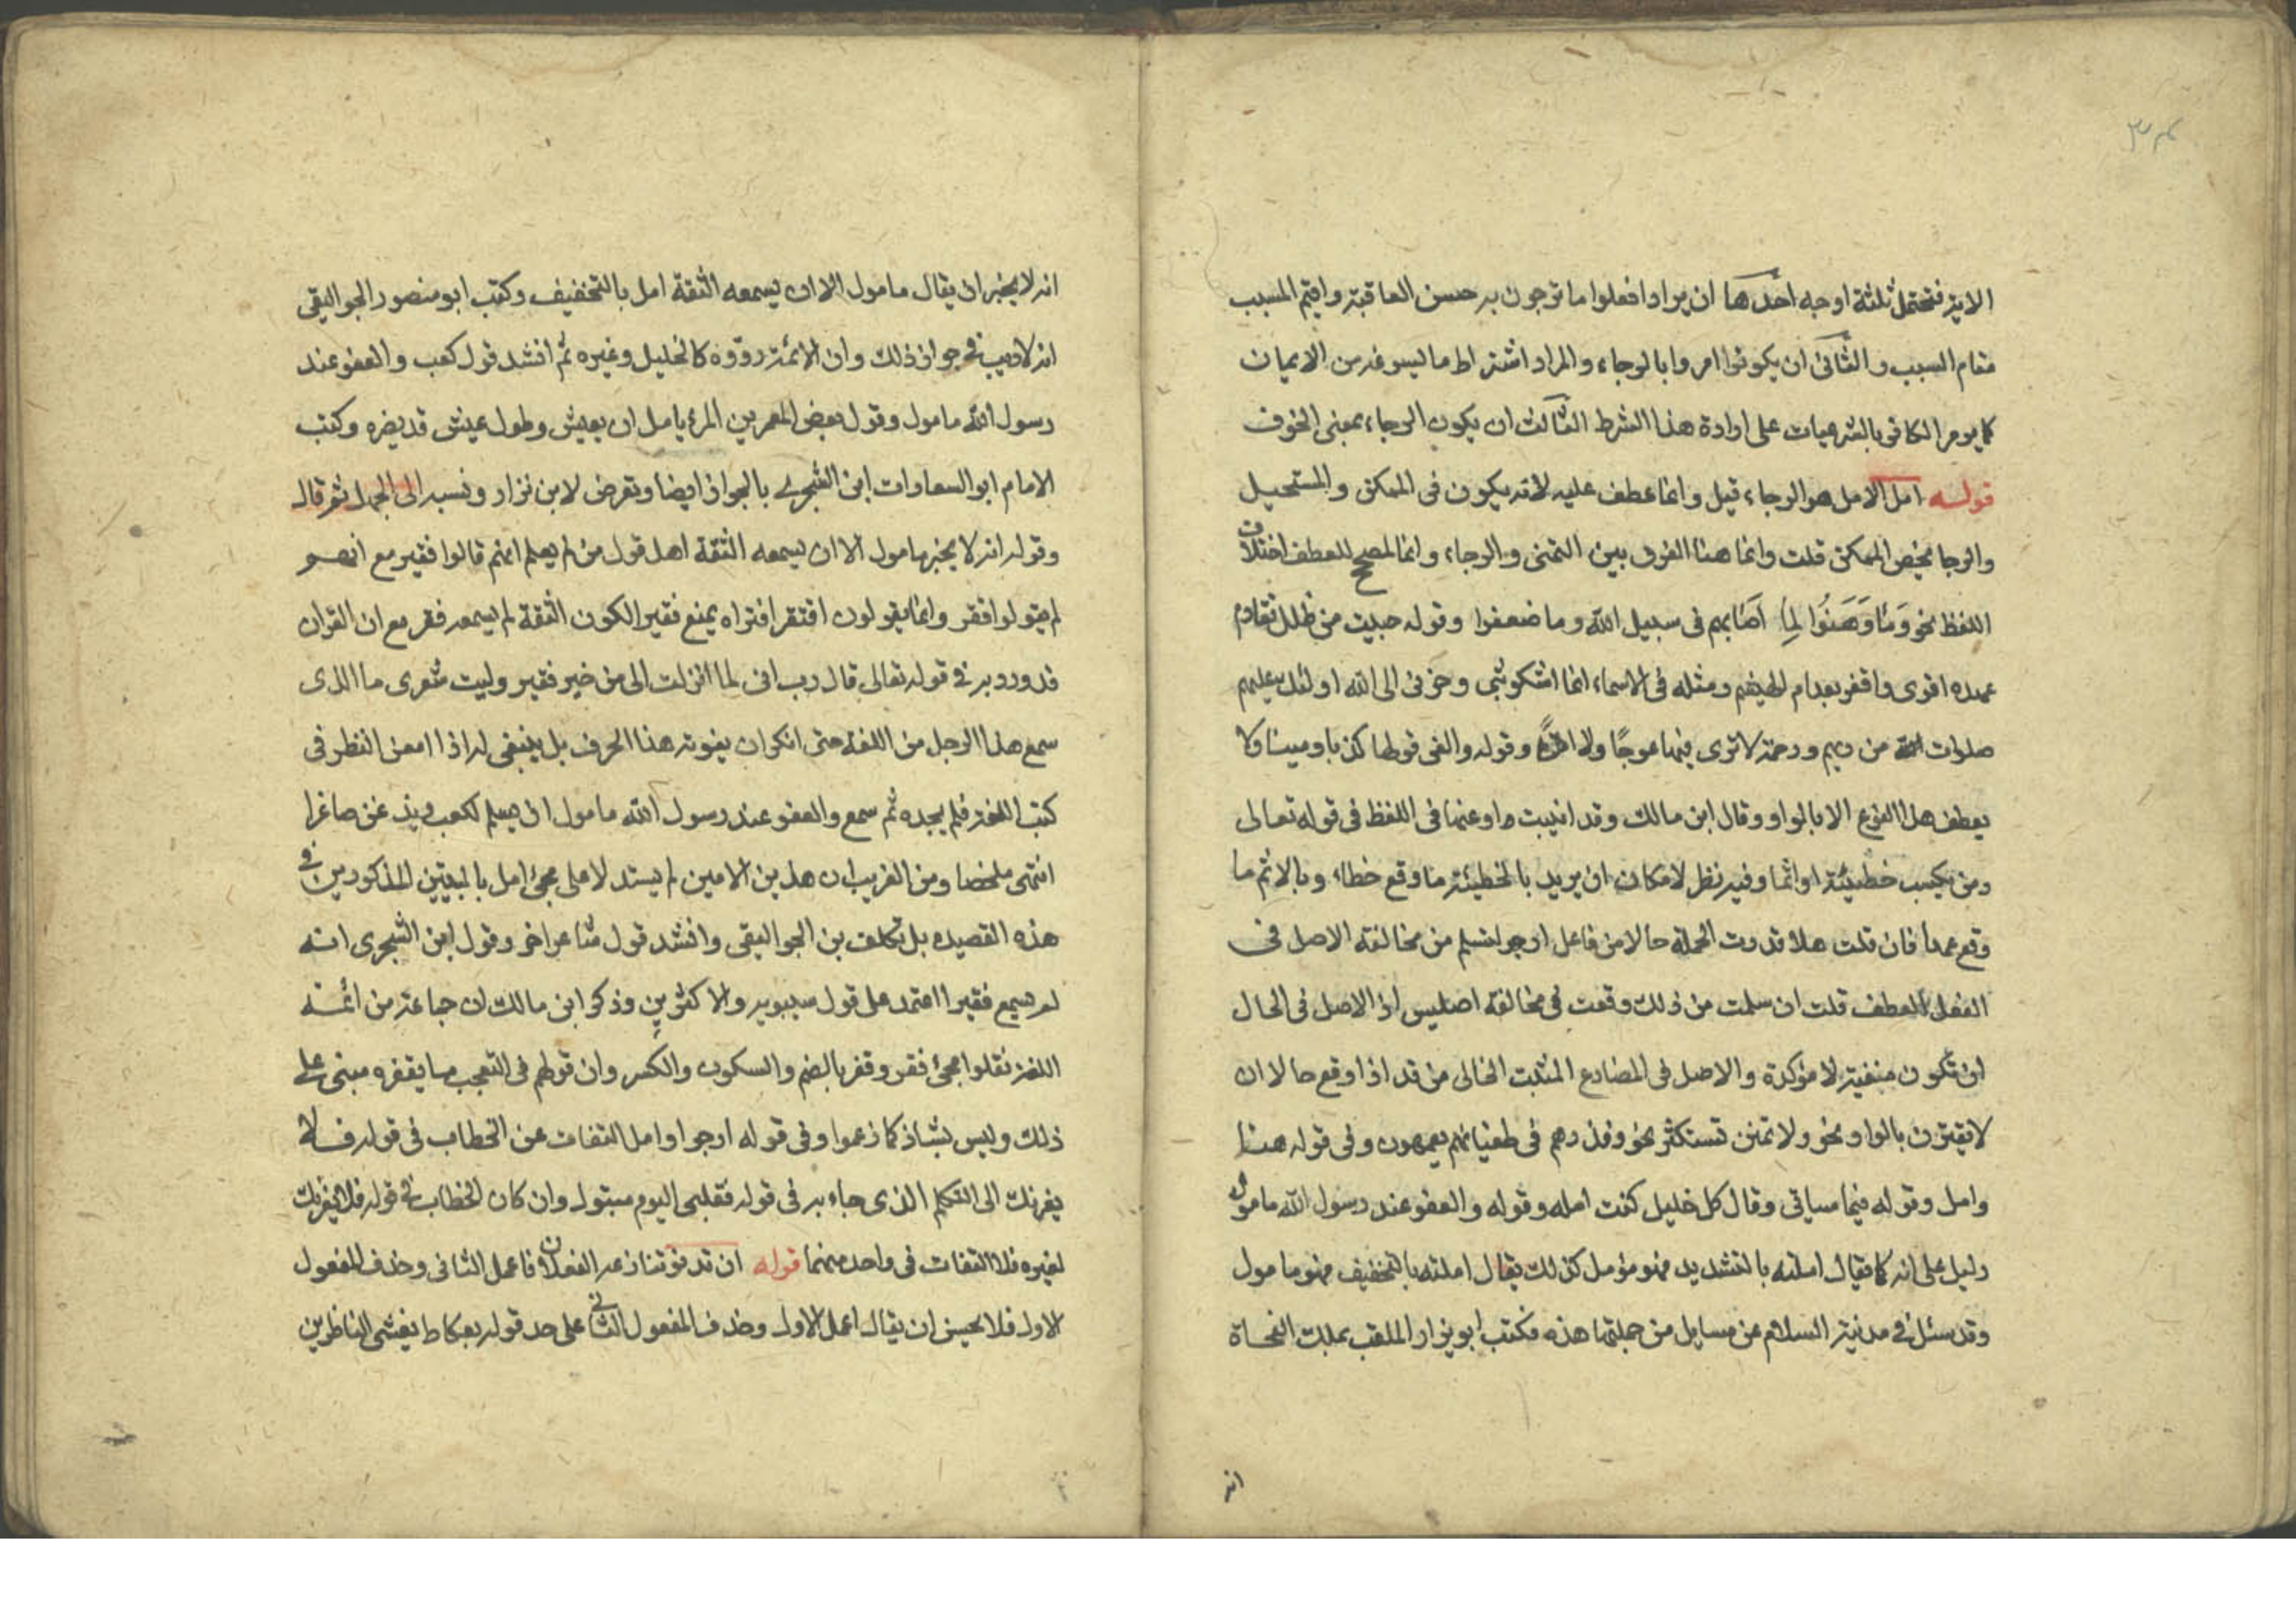 الاية فتحتمل ثلثة اوجه احدها ان يراد افعلوا ما ترجون به حسن العاقبة واقيم المسبب
مقام السبب والثانى ان يكونوا امروا بالرجاء والمراد اشتراط ما يسوغه من الايمان
كما يومر الكافر بالشرعيات على ارادة هذا الشرط الثالث ان يكون الرجاء بمعنى الخوف
قوله امل الامل هو الرجاء قيل وانما عطف عليه لانه يكون فى الممكن والمستحيل
والرجا يخص الممكن قلت وانما هنا الفرق بين التمنى والرجاء وانما المصحح للعطف اختلاف
اللفظ نحو وَمَا وَهَنُوا لِمَا اَصَابهم فى سبيل الله وما ضعفوا وقوله حييت من طلل تقادم
عهده اقوى واقفر بعد ام الهيثم ومثله فى الاسماء انما اشكو بثى وحزنى الى الله اولئك عليهم
صلوات من ربهم ورحمة لا ترى فيها عوجًا ولا امتًا وقوله والفى قولها كذبا ومينا ولا
يعطف هذا النوع الا بالواو وقال ابن مالك وقد انيبت او عنها فى اللفظ فى قوله تعالى
ومن يكسب خطيئة او اثما وفيه نظر لامكان ان يريد بالخطيئة ما وقع خطاء وبالاثم ما
وقع عمدا فان قلت هلا قدرت الجملة حالا من فاعل ارجو لتسلم من مخالفة الاصل فى
الفعل للعطف قلت ان سلمت من ذلك وقعت فى مخالفة اصلين اذ الاصل فى الحال
ان تكون منفية لا مؤكدة والاصل فى المضارع المثبت الخالى من قد اذا وقع حالا ان
لا يقترن بالواو نحو ولا تمنن تستكثر نحو ونذرهم فى طغيانهم يعمهون وفى قوله هنا
وامل وقوله فيما سياتى وقال كل خليل كنت امله وقوله والعفو عند رسول الله مامول
دليل على انه كما يقال املته بالتشديد فهو مؤمل كذلك يقال املته بالتخفيف فهو مامول
وقد سئل فى مدينة السلام عن مسايل من جملتها هذه فكتب ابو نزار الملقب بملك النحاة
انه
انه لا يجوز ان يقال مامول الا ان يسمعه الثقة امل بالتخفيف وكتب ابو منصور الجواليقى
انه لا ريب فى جواز ذلك وان الائمة رووه كالخليل وغيره ثم انشد قول كعب والعفو عند
رسول الله مامول وقول بعض المعمرين المرء يامل ان يعيش وطول عيش قد يضره وكتب
الامام ابو السعادات ابن الشجرى بالجواز ايضا وتعرض لابن نزار ونسبه الى الجهل ثم قال
وقوله انه لا يجوز مامول الا ان يسمعه الثقة امل قول من لم يعلم انهم قالوا فقير مع انهم
لم يقولوا فقر وانما يقولون افتقر افتراه يمنع فقيرا لكون الثقة لم يسمعه فقر مع ان القران
قد ورد به فى قوله تعالى قال رب انى لما انزلت الى من خير فقير وليت شعرى ما الذى
سمع هذا الرجل من اللغة حتى انكر ان يفوته هذا الحرف بل ينبغى له اذا امعن النظر فى
كتب اللغة فلم يجده ثم سمع والعفو عند رسول الله مامول ان يسلم لكعب ويذعن صاغرا
انتهى ملخصا ومن الغريب ان هذين الامامين لم يستدلا على مجئ امل بالبيتين المذكورين فى
هذه القصيده بل تكلف بن الجواليقى وانشد قول شاعر اخر وقول ابن الشجرى انه
لم يسمع فقيرا اعتمد على قول سيبويه والاكثرين وذكر ابن مالك ان جماعة من ائمة
اللغة نقلوا مجئ فقر وفقر بالضم والسكون والكسر وان قولهم فى التعجب ما يفقره مبنى على
ذلك وليس بشاذ كما زعموا وفى قوله ارجوا وامل التفات عن الخطاب فى قوله فلا
يغرنك الى التكلم الذى جاء به فى قوله فقلبى اليوم متبول وان كان الخطاب فى قوله فلا يغرنك
لغيره فلا التفات فى واحد منهما قوله ان تدنو تنازعه الفعلان فاعمل الثانى وحذف المفعول
الاول فلا يحسن ان يقال اعمل الاول وحذف المفعول الثانى على حد قوله بعكاظ يغشى الناظرين